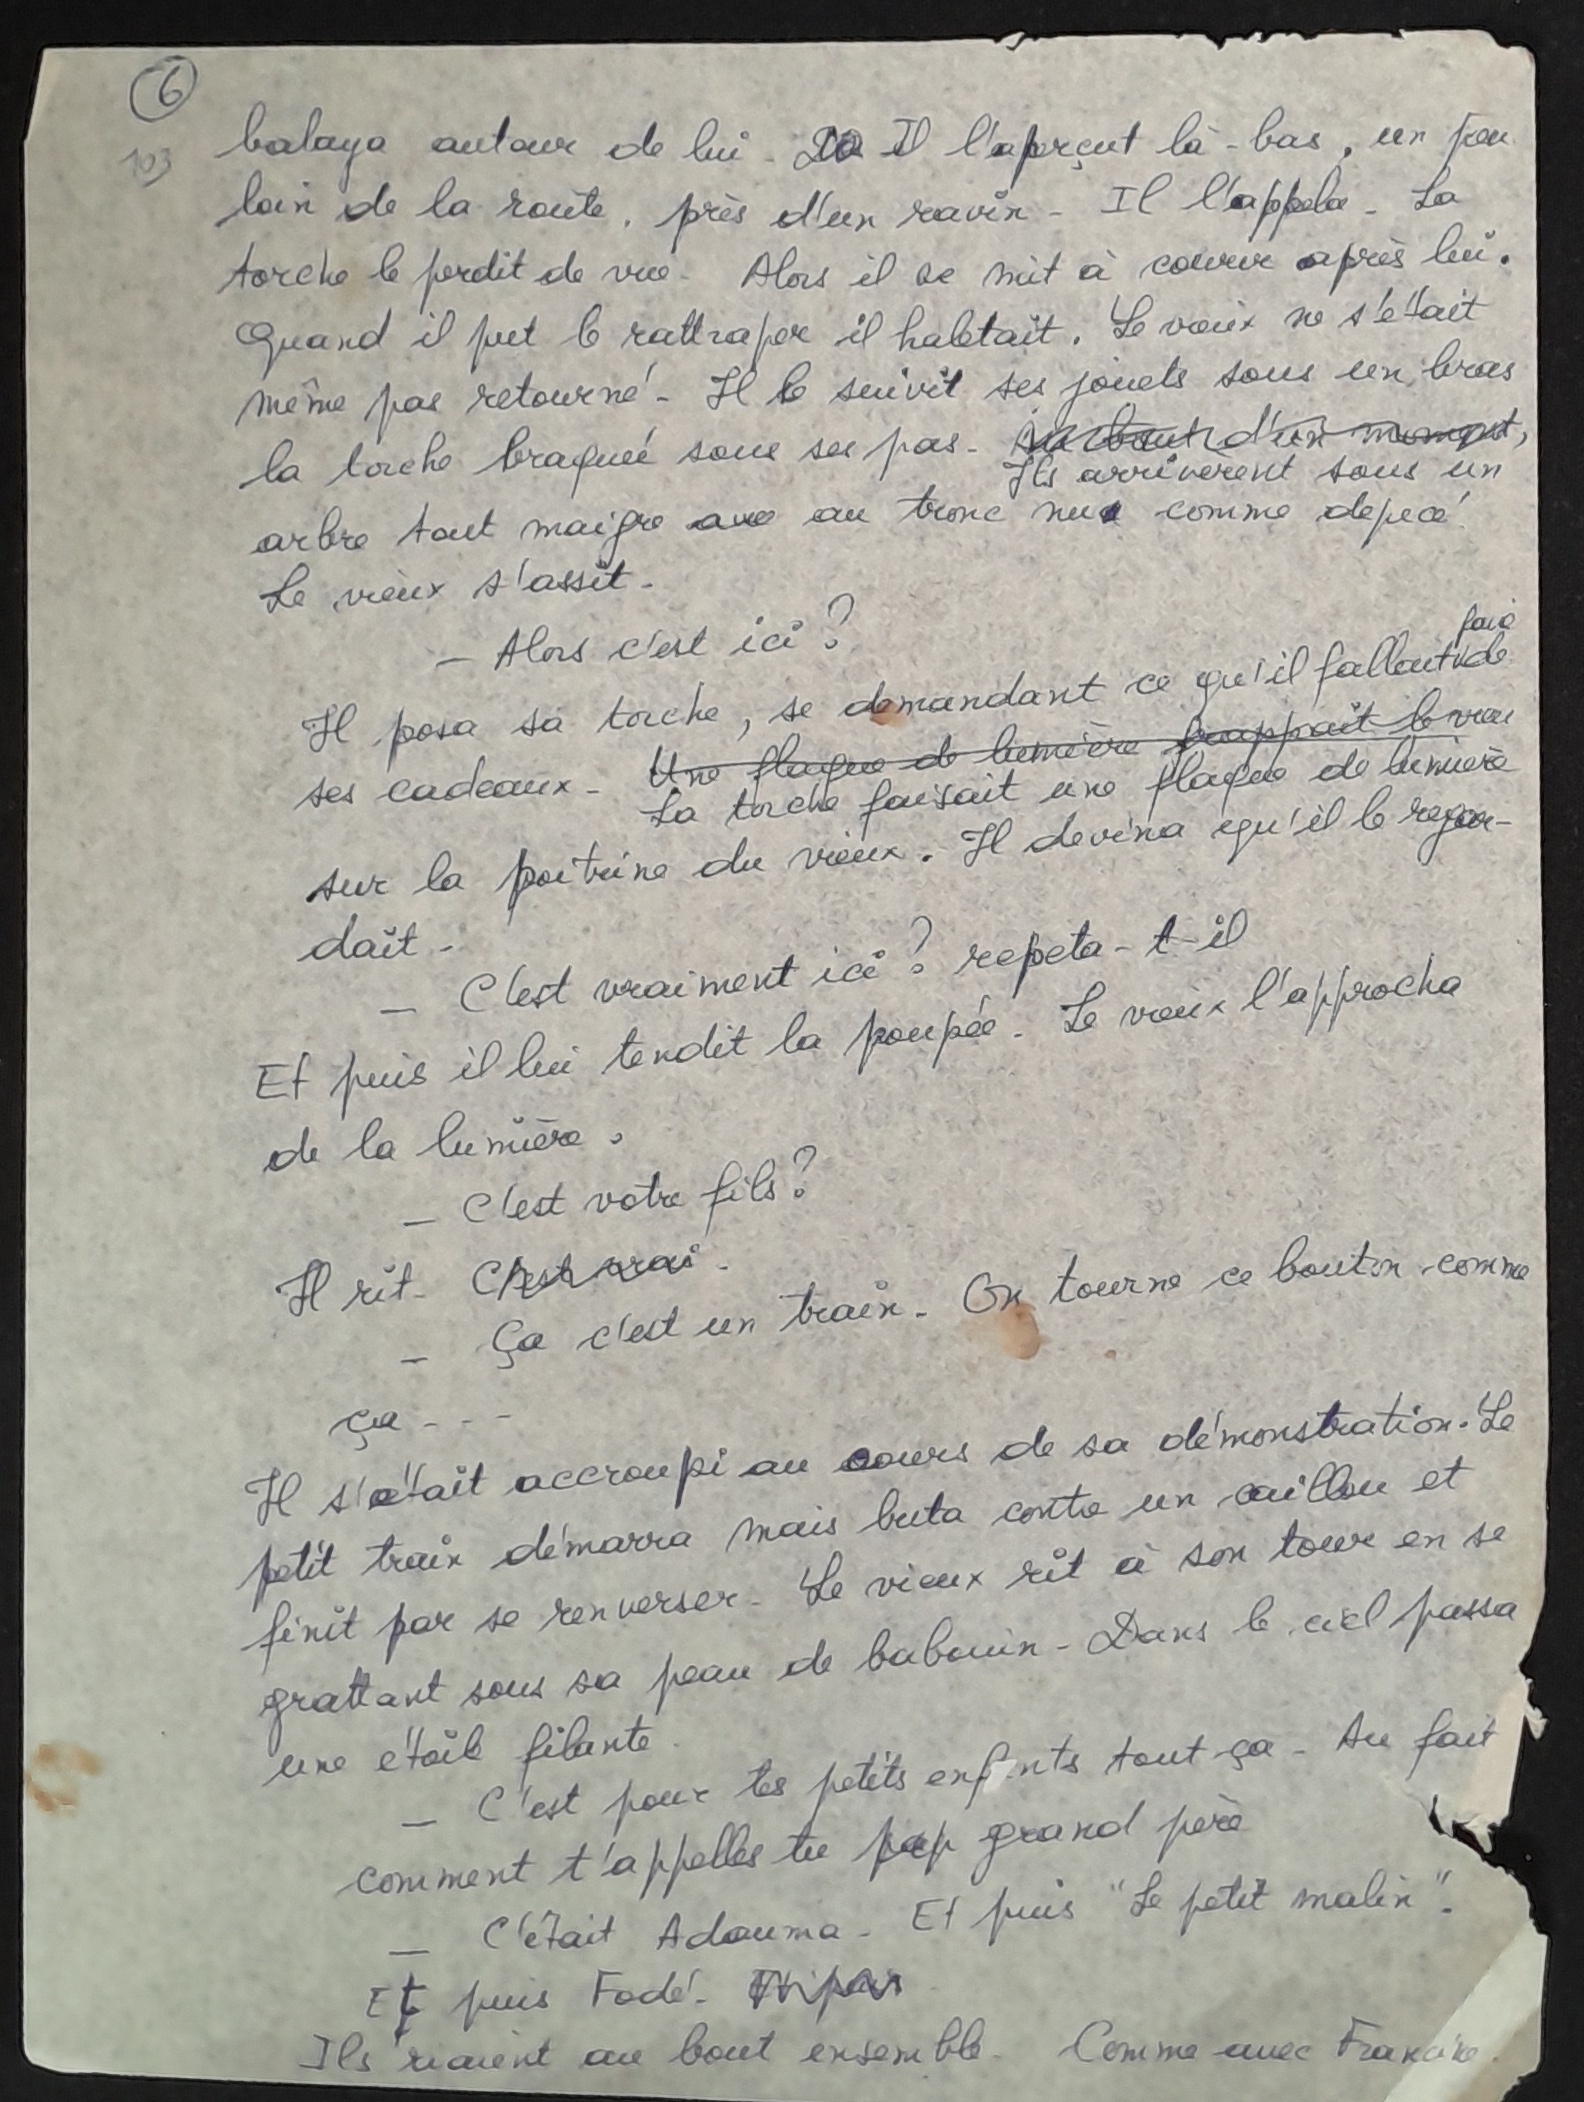 6
103
balaya autour de lui - Il l'aperçut là-bas, un peu
loin de la route, près d'un ravin - Il l'appela - La
torche le perdit de vue - Alors il se mit à courir après lui.
Quand il put le rattraper il haletait. Le vieux ne s'était
même pas retourné - Il le suivit ses jouets sous un bras
la torche braquée sous ses pas - Au bout d'un moment,
Ils arrivèrent sous un
arbre tout maigre ave au tronc nu comme depecé
Le vieux s'assit -
— Alors c'est ici ?
faire
Il posa sa torche, se demandant ce qu'il fallait de
ses cadeaux - Une flaque de lumière frappait le vieu
La torche faisait une flaque de lumière
sur la poitrine du vieux. Il devina qu'il le regar-
dait -
— C'est vraiment ici ? repeta-t-il
Et puis il lui tendit la poupée - Le vieux l'approcha
de la lumière.
— C'est votre fils ?
Il rit - C'est vrai -
— Ça c'est un train - On tourne ce bouton comme
ça - - -
Il s'était accroupi au cours de sa démonstration. Le
petit train démarra mais buta contre un caillou et
finit par se renverser - Le vieux rit à son tour en se
grattant sous sa peau de babouin - Dans le ciel passa
une étoile filante.
— C'est pour tes petits enfants tout ça - Au fait
comment t'appelles tu pap grand père
— C'était Adouma - Et puis "Le petit malin".
Et puis Fodé - Et puis
Ils riaient au bout ensemble - Comme avec Francine.